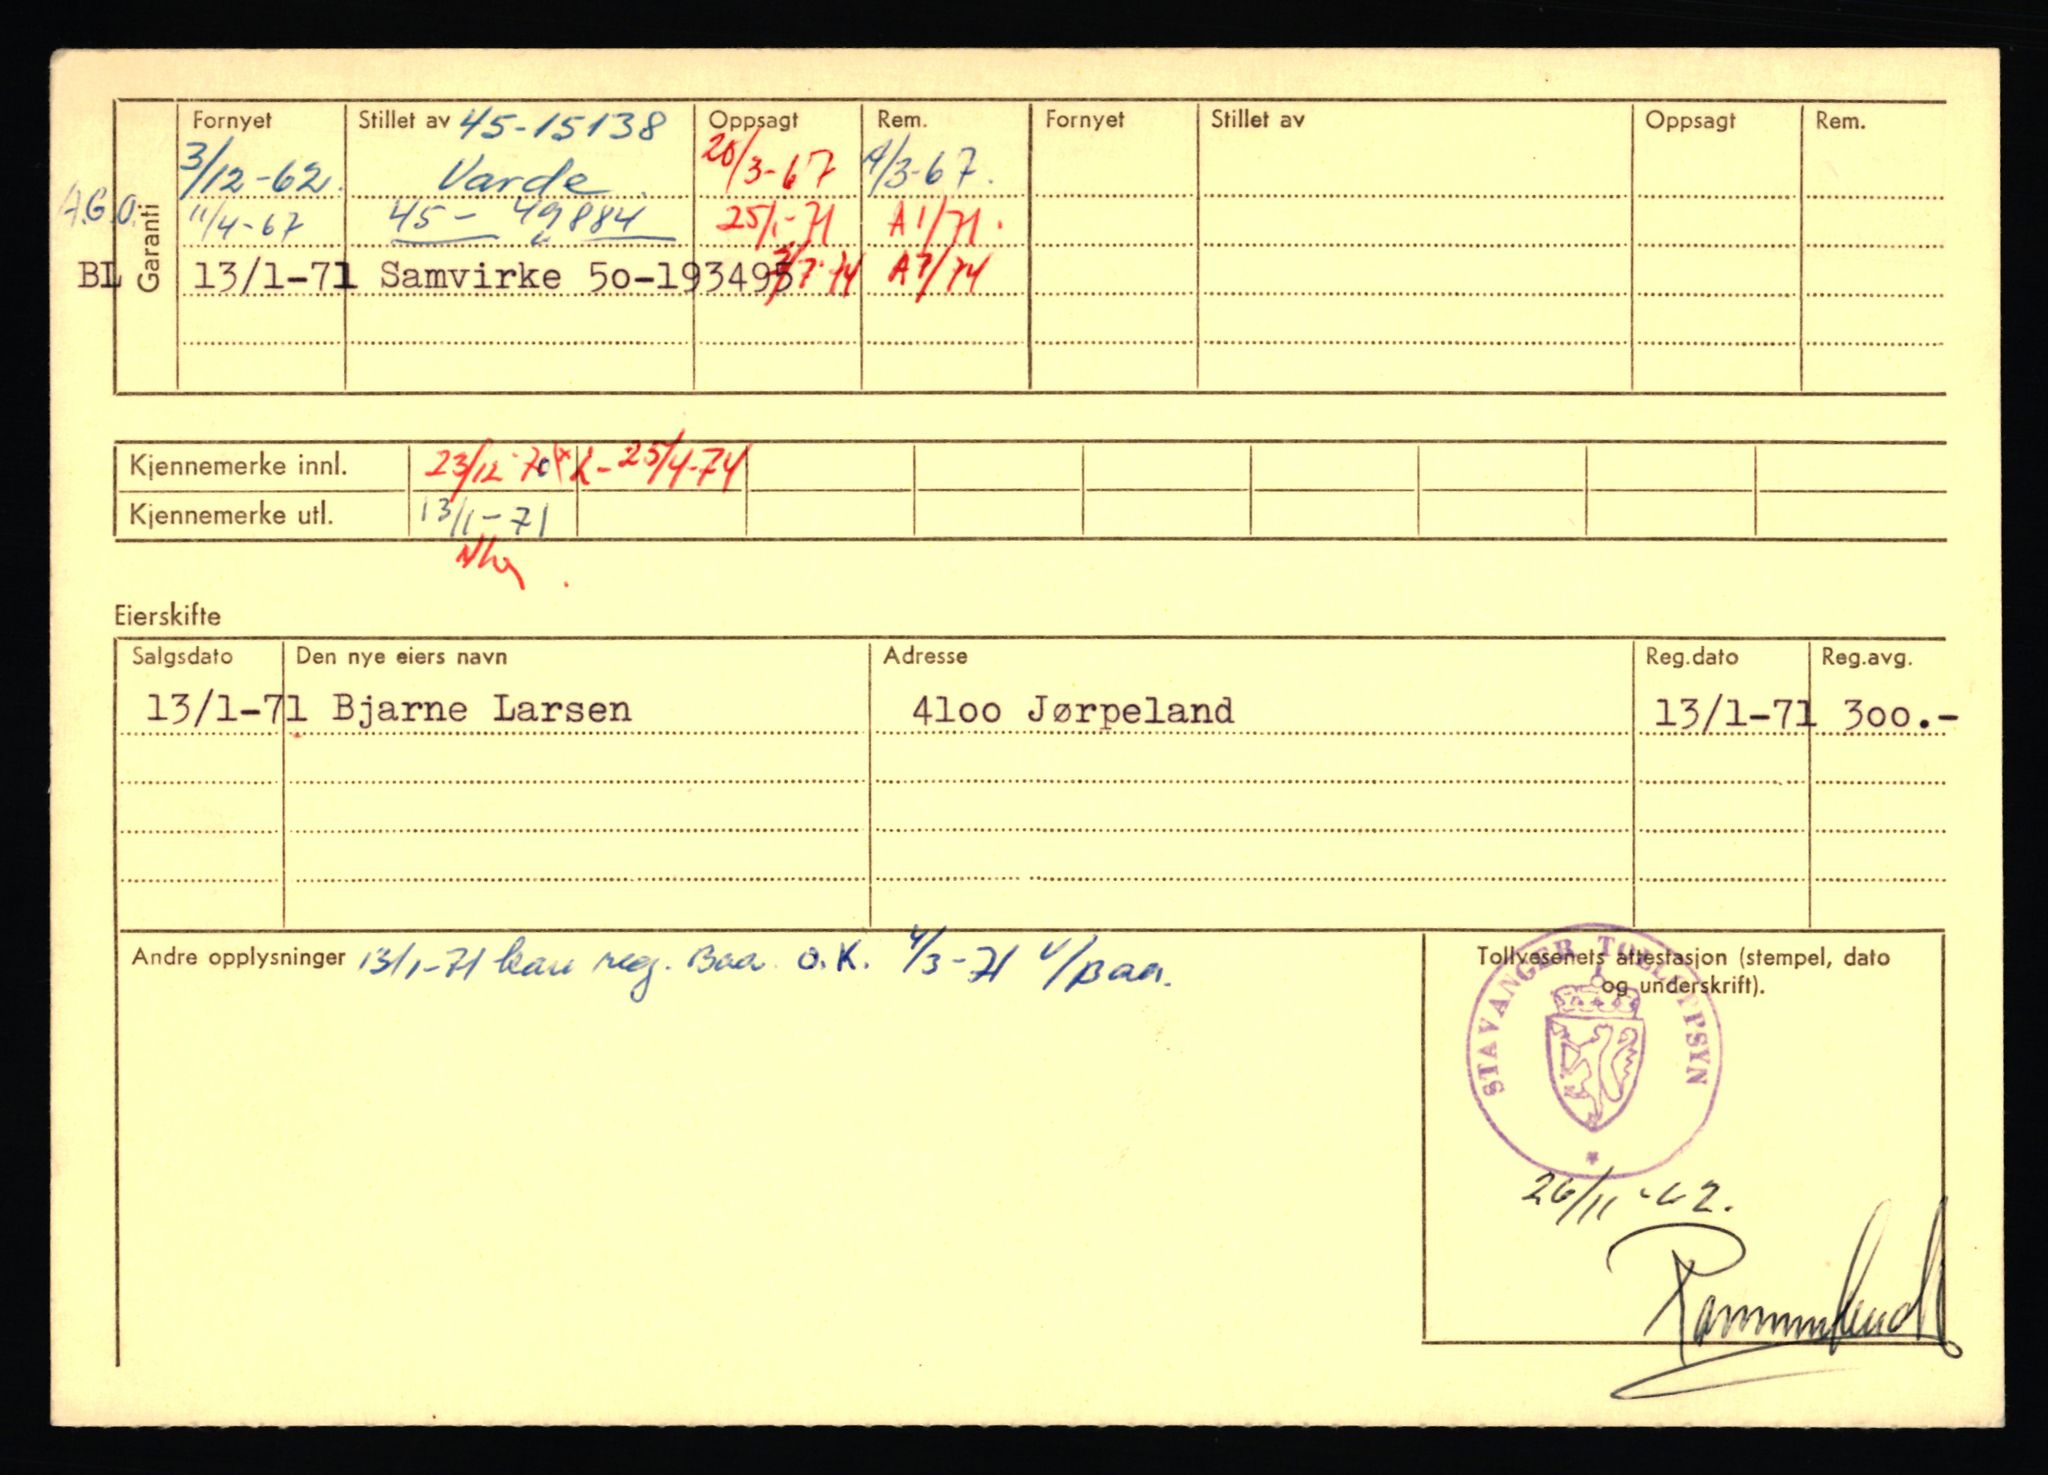 Fornyet Stillet av 45-15138 Oppsagt Rem. Fornyet Stillet av Oppsagt Rem.
3/12-62. Varde. 20/3-67 A/3-67.
A.G.O. 11/4-67 45- 49884 25/1-71 A 1/71.
BL 13/1-71 Samvirke 5o-193495 2/7-74 A 7/74
Garanti
Kjennemerke innl. 23/12-70 25/4-74
Kjennemerke utl. 13/1-71
Eierskifte
Salgsdato Den nye eiers navn Adresse Reg.dato Reg.avg.
13/1-71 Bjarne Larsen 41oo Jørpeland 13/1-71 3oo.-
Andre opplysninger 13/1-71 kan reg. Baa. O.K. 4/3-71 v/Baa.
Tollvesenets attestasjon (stempel, dato
og underskrift).
STAVANGER TOLLOPPSYN
26/11-62.